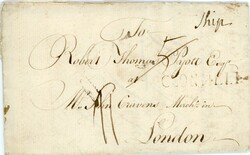 Ship
To
Robert Thomas Pyott Esqr
at
Mr John Cravens Mercht in
London